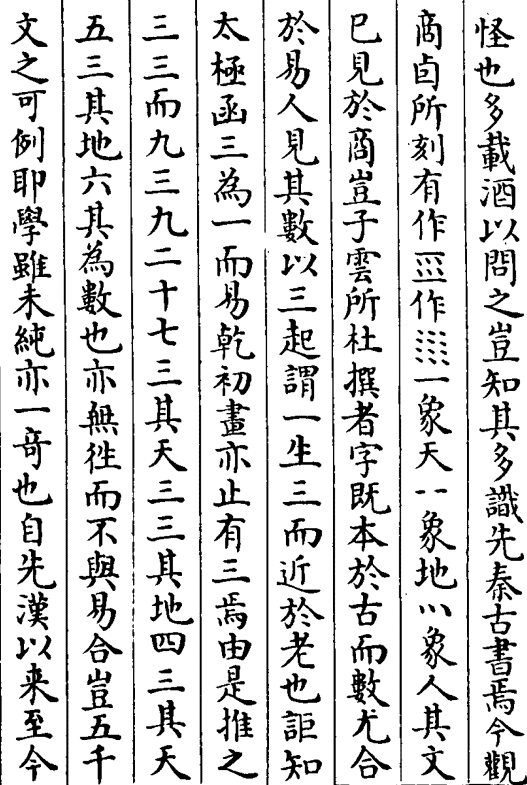 怪也多載酒以問之豈知其多識先秦古書焉今觀
商卣所刻有作作一象天𠄠象地八象人其文
已見於商豈子雲所杜撰者字既本於古而數尤合
於易人見其數以三起謂一生三而近於老也詎知
太極函三為一而易乾初畫亦止有三焉由是推之
三三而九三九二十七三其天三三其地四三其天
五三其地六其為數也亦無徃而不與易合豈五千
文之可例耶學雖未純亦一竒也自先漢以来至今